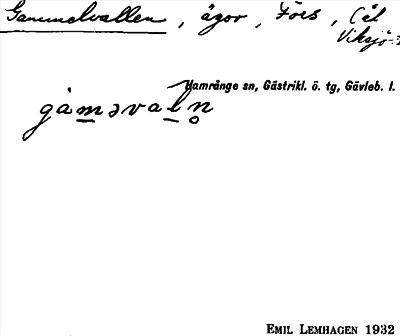 Gammelvallen, ägor, Förs,
Viksjö
Hamrånge sn, Gästrikl. ö. tg, Gävleb. l.
gåməvaln̥
EMIL LEMHAGEN 1932